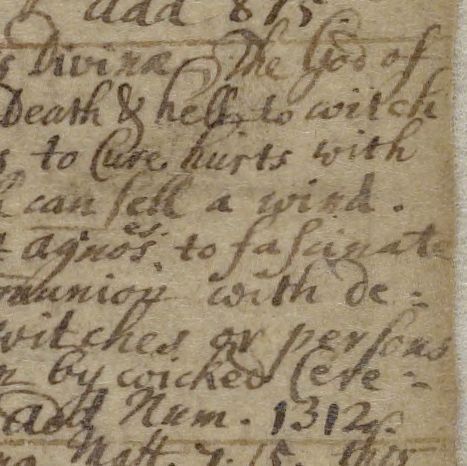 add 815
s Divinæ, The God of
Death & hell, to witch
s to Cure hurts with
can sell a wind.
t agnos, to fascinate
munion with de:
witches or persons
n by wicked Cere:
add Num. 1312.
Matt. 7.15. this